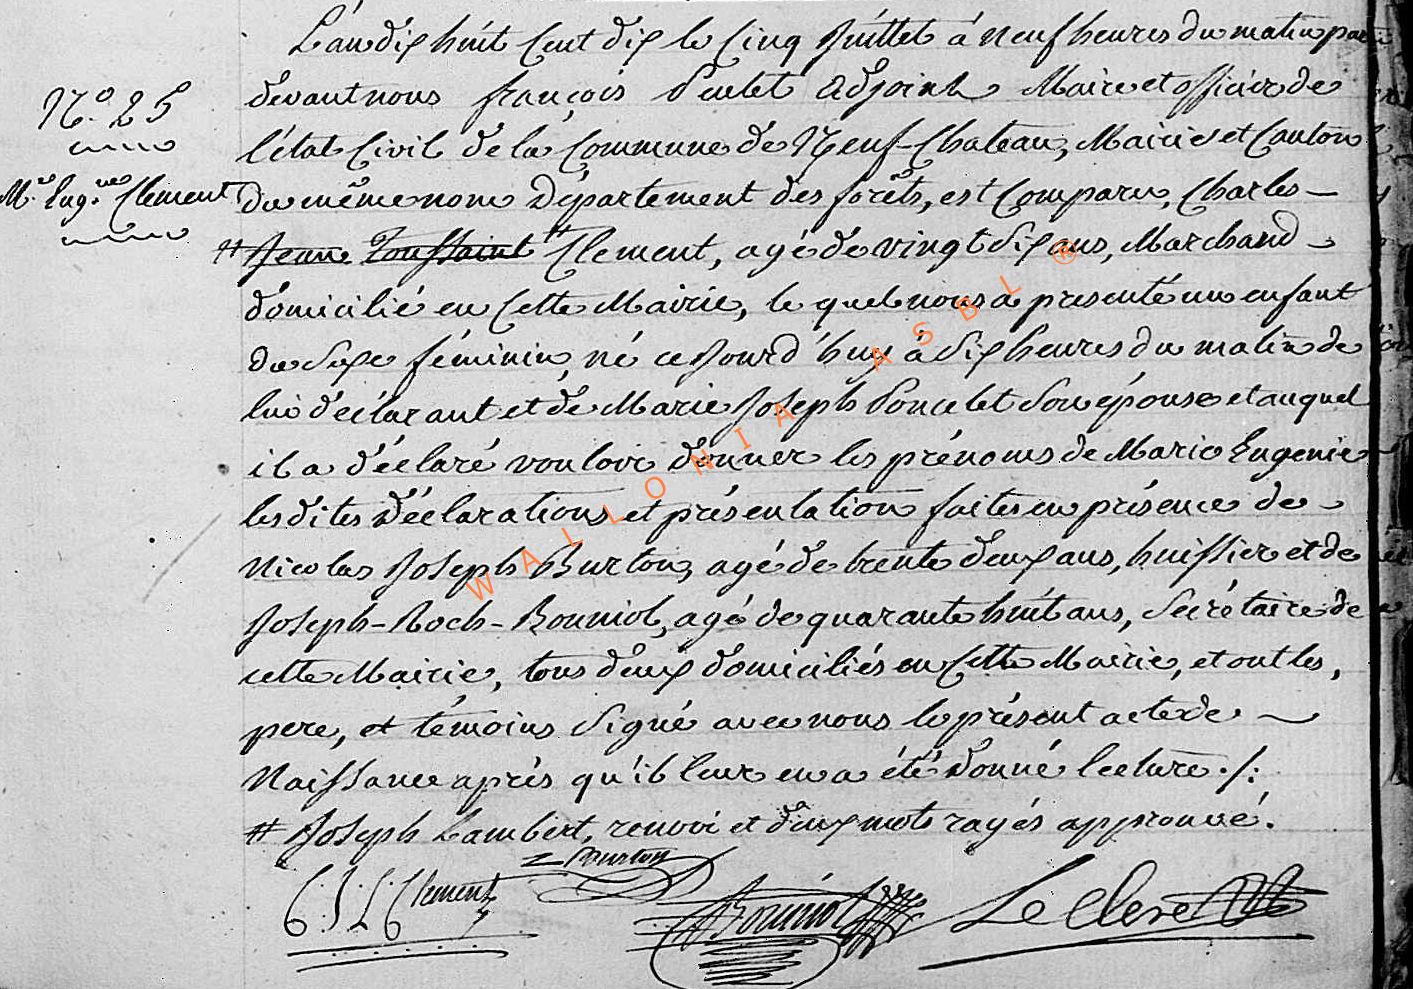 L'an dix huit Cent dix le Cinq Juillet à neuf heures du matin par
N.º 25
devant nous françois adjoint Maire et officier de
l'état Civil de la Commune de Neuf-Chateau, Mairie et Canton
M.ie Eug.nie Clement
du même nom Département des forêts, est Comparu, Charles-
# Jeanne Toussaint # Clement, agé de vingt six ans, Marchand
domicilié en Cette Mairie, le quel nous a presenté un enfant
du Sexe féminin, né ce Jourd'huy à Six heures du matin de
lui déclarant et de Marie Joseph Poncelet Son épouse et auquel
il a déclaré vouloir donner les prénoms de Marie Eugenie
les dites Déclarations et présentation faites en présence de
Nicolas Joseph Burton, agé de trente deux ans, huissier et de
Joseph-Roch-Bouniol, agé de quarante huit ans, Secrétaire de
cette Mairie, tous deux domiciliés en Cette Mairie, et ont les,
pere, et témoins Signé avec nous le présent acte de
Naissance après qu'il leur en a été Donné lecture ./:
# Joseph Lambert, renvoi et deux mots rayés approuvé.
Burton
C. J. L. Clement
Bouniol
Le Clere
WALLONIA ASBL ®